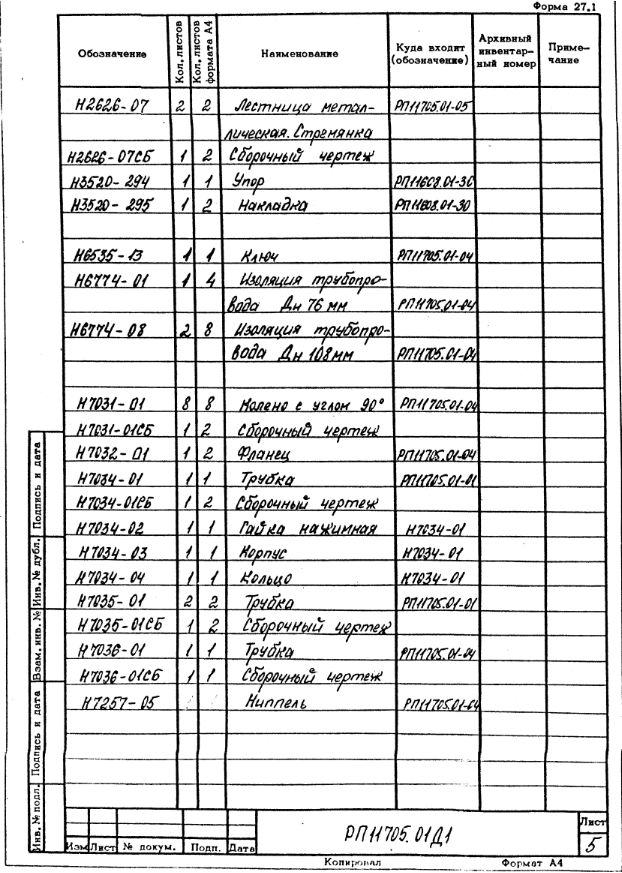 Форма 27.1
Обозначение Кол. листов Кол. листов формата А4 Наименование Куда входит (обозначение) Архивный инвентарный номер Примечание
Н2626-07 2 2 Лестница метал- РП11705.01-05
лическая. Стремянка
Н2626-07СБ 1 2 Сборочный чертеж
Н3520-294 1 1 Упор РП11608.01-30
Н3520-295 1 2 Накладка РП11608.01-30
Н6535-13 1 1 Ключ РП11705.01-04
Н6774-01 1 4 Изоляция трубопро-
вода Дн 76 мм РП11705.01-04
Н6774-08 2 8 Изоляция трубопро-
вода Дн 108 мм РП11705.01-04
Н7031-01 8 8 Колено с углом 90° РП11705.01-04
Н7031-01СБ 1 2 Сборочный чертеж
Н7032-01 1 2 Фланец РП11705.01-04
Н7034-01 1 1 Трубка РП11705.01-01
Н7034-01СБ 1 2 Сборочный чертеж
Н7034-02 1 1 Гайка нажимная Н7034-01
Н7034-03 1 1 Корпус Н7034-01
Н7034-04 1 1 Кольцо Н7034-01
Н7035-01 2 2 Трубка РП11705.01-01
Н7035-01СБ 1 2 Сборочный чертеж
Н7036-01 1 1 Трубка РП11705.01-04
Н7036-01СБ 1 1 Сборочный чертеж
Н7257-05 Ниппель РП11705.01-04
Инв. № подл. Подпись и дата Взам. инв. № Инв. № дубл. Подпись и дата
Изм Лист № докум. Подп. Дата
РП11705.01Д1
Лист
5
Копировал Формат А4